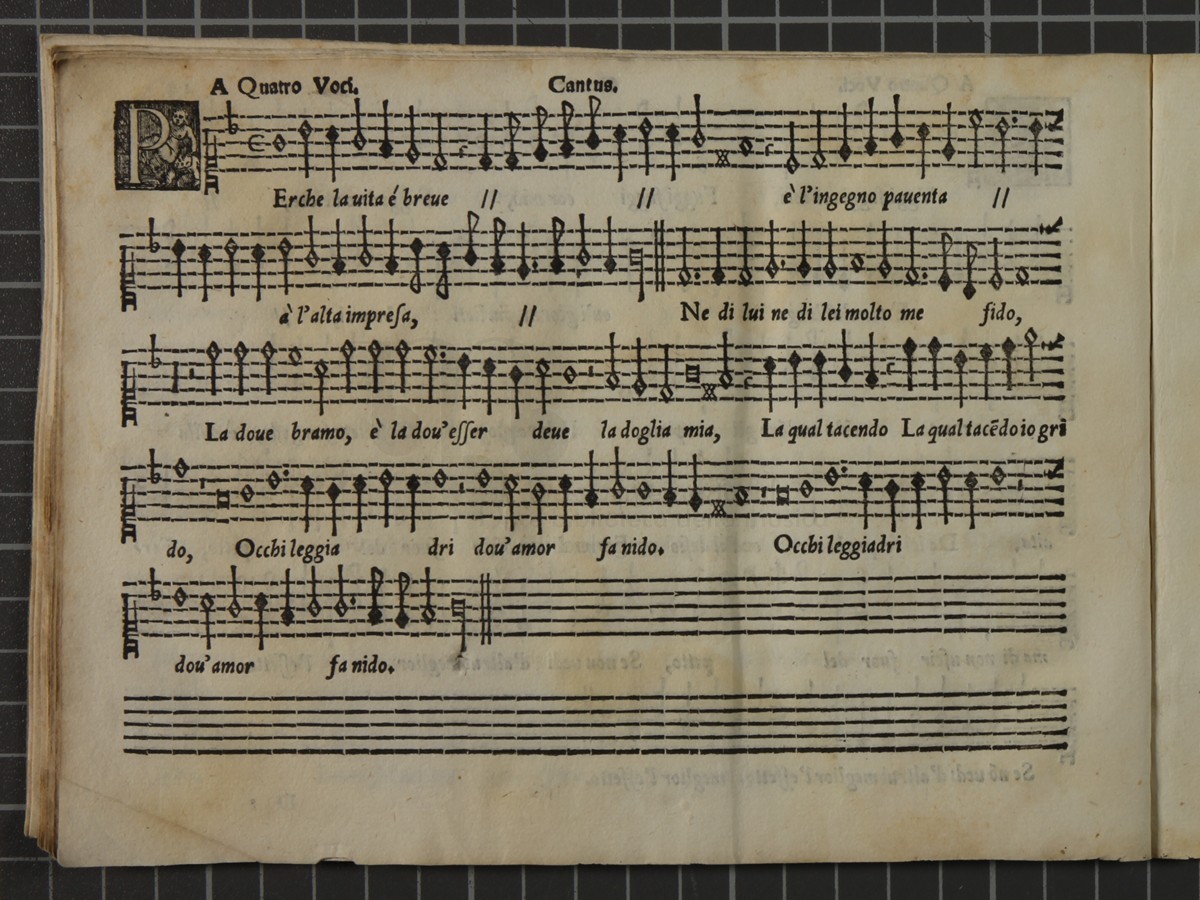 A Quatro Voci. Cantus.
P Erche la uita é breue // // è l'ingegno pauenta //
à l'alta impreſa, // Ne di lui ne di lei molto me fido,
La doue bramo, è la dou'eſſer deue la doglia mia, La qual tacendo La qual tacēdo io gri
do, Occhi leggia dri dou'amor fa nido. Occhi leggiadri
dou'amor fa nido.